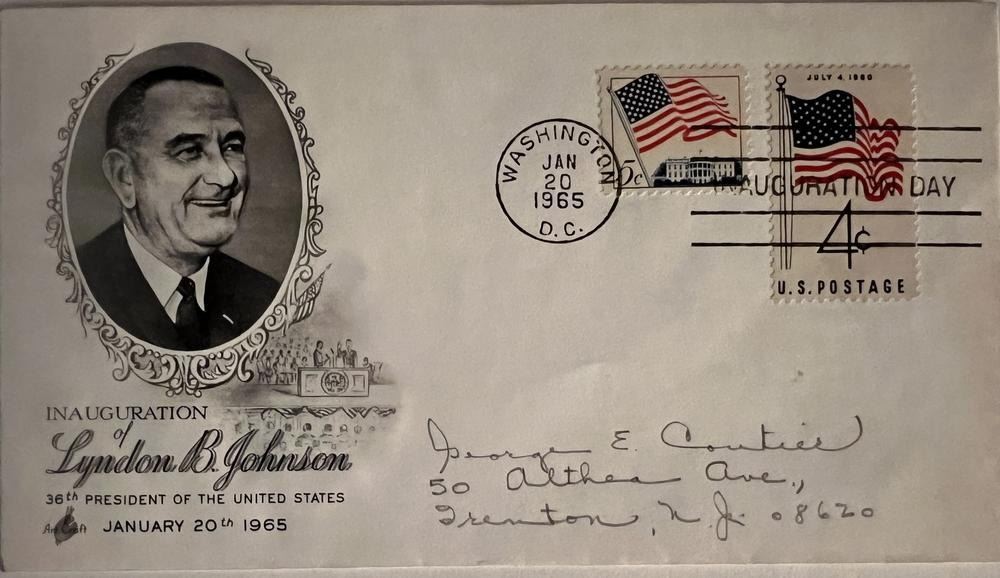 INAUGURATION
of
Lyndon B. Johnson
36th PRESIDENT OF THE UNITED STATES
Art Craft JANUARY 20th 1965
WASHINGTON
JAN
20
1965
D.C.
5c
JULY 4, 1960
INAUGURATION DAY
4¢
U.S. POSTAGE
George E.
50 Althea Ave.,
Trenton, N.J. 08620